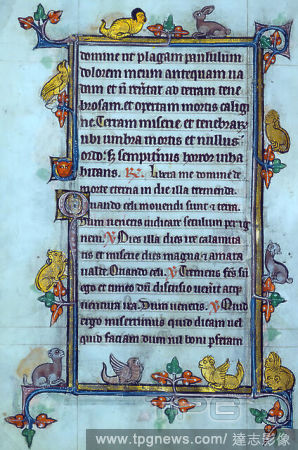 domine ut plagam paululum
dolorem meum antequam ua
dam et n̄ reuertar ad terram tene
brosam. et opertam mortis calig
ne. Terram miserie et tenebrar̄.
ubi umbra mortis et nullus
ordo. s; sempiternus horror inha
bitans. R. Libera me domine d̄
morte eterna in die illa tremenda.
Quando celi mouendi sunt & terra.
Dum ueneris iudicare seculum per ig
nem. V Dies illa dies ire calamita
tis et miserie dies magna & amara
ualde. Quando celi. V Tremens
et timeo dum discussio uenerit atqȝ
uentura ira. Dum ueneris. V Quid
ergo miserrimus quid dicam uel
quid faciam dum nil boni
www.tpgnews.com/ 達志影像